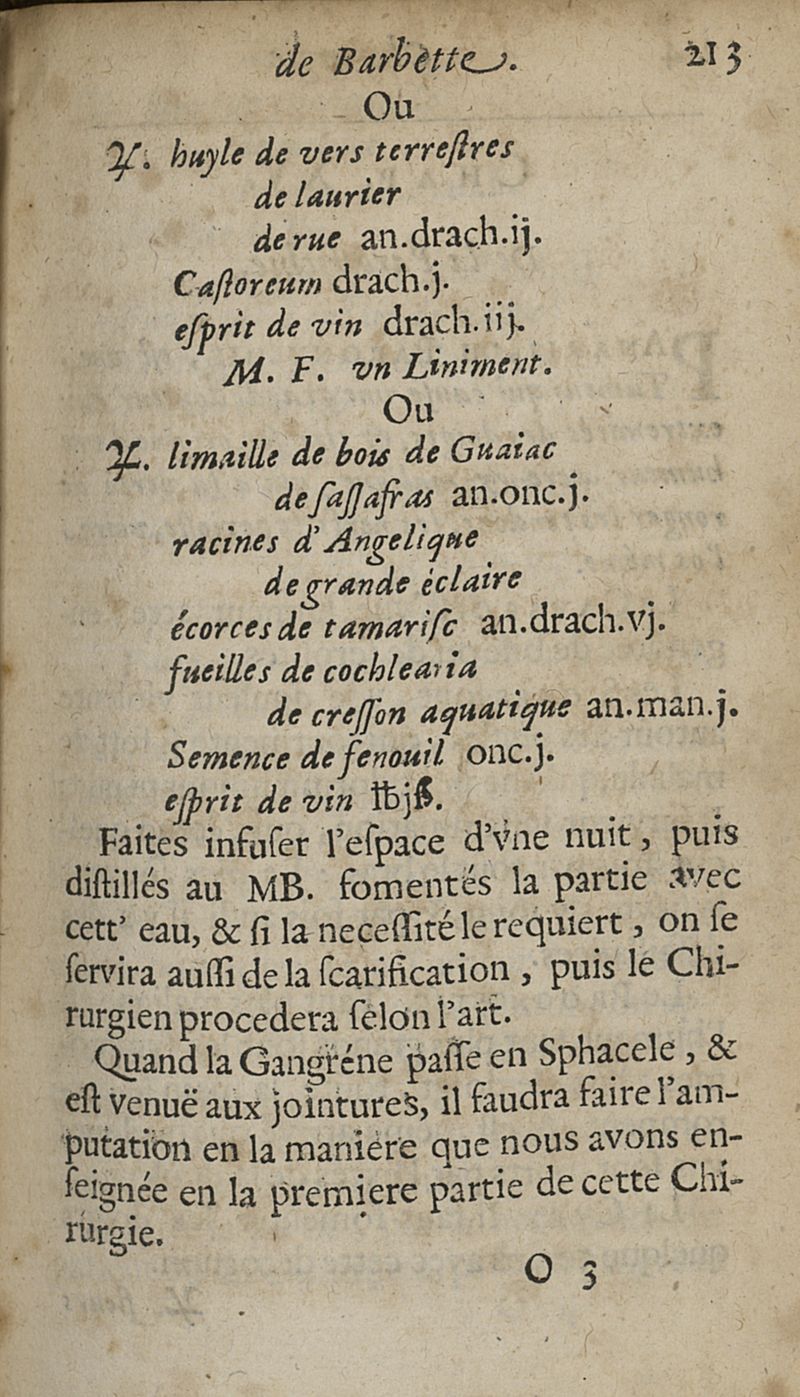 de Barbètte. 213
Ou
℞. huyle de vers terreſtres
de laurier
de rue an.drach.ij.
Caſtoreum drach.j.
eſprit de vin drach.iij.
M. F. vn Liniment.
Ou
℞. limaille de bois de Guaiac
de ſaſſafras an.onc.j.
racines d'Angelique
de grande éclaire
écorces de tamariſc an.drach.vj.
fueilles de cochlearia
de creſſon aquatique an.man.j.
Semence de fenouil onc.j.
eſprit de vin ℔jß.
Faites infuſer l'eſpace d'vne nuit, puis
diſtillés au MB. fomentés la partie avec
cett' eau, & ſi la neceſſité le requiert, on ſe
ſervira auſſi de la ſcarification, puis le Chi-
rurgien procedera ſelon l'art.
Quand la Gangréne paſſe en Sphacele, &
eſt venuë aux jointures, il faudra faire l'am-
putation en la maniére que nous avons en-
ſeignée en la premiere partie de cette Chi-
rurgie.
O 3